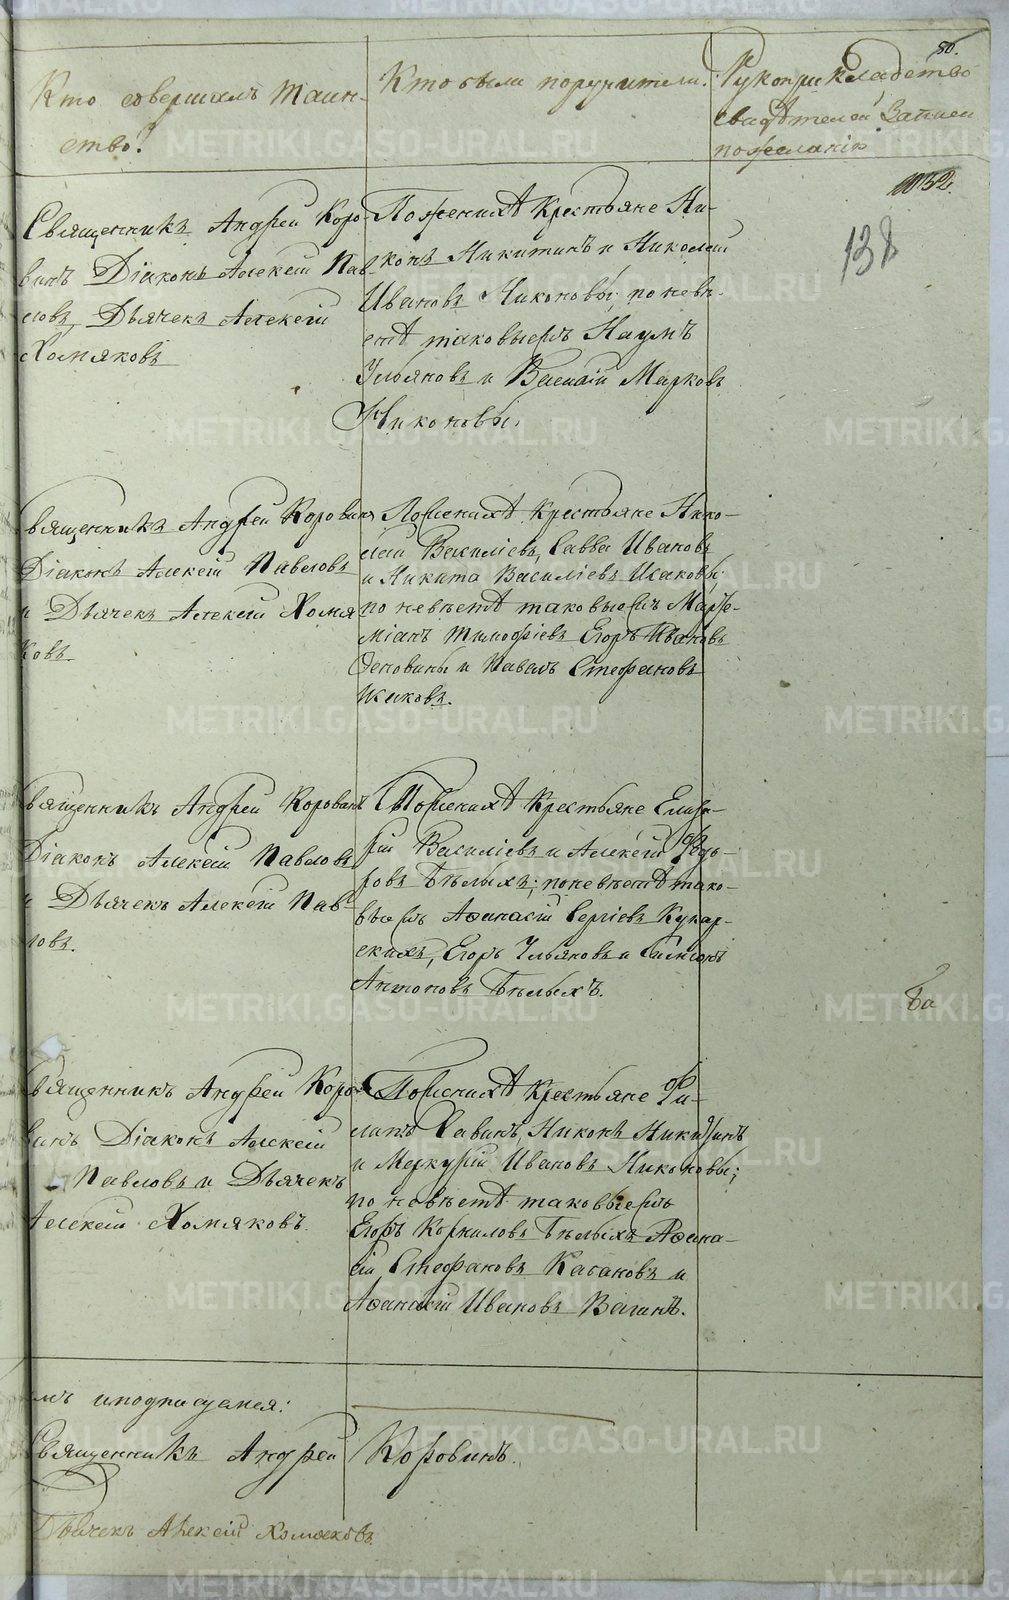 50.
Кто совершалъ таин-
ство?
Кто были поручители.
Рукоприкладство
свидѣтелей записи
по желанію
1032.
138
Священникъ Андрей Коро-
винъ Діаконъ Алексій Пав-
ловъ, Дьячекъ Алексій
Хомяковъ
По женихѣ Крестьяне Ни-
конъ Никитинъ и Николай
Ивановъ Никоновы; по невѣ-
стѣ таковыежъ Наумъ
Ульяновъ и Василій Марковъ
Никоновы.
вященникъ Андрей Коровинъ
Діаконъ Алексій Павловъ
и Дьячекъ Алексій Хомя
ковъ.
По женихѣ Крестьяне Нико-
лай Василіевъ, Савва Ивановъ
и Никита Василіевъ Исаковы
по невѣстѣ таковыежъ
міанъ Тимофіевъ Егоръ Ивановъ
и Павелъ Стефановъ
Исаковъ.
вященникъ Андрей Коровинъ
Діаконъ Алексій Павловъ
и Дьячекъ Алексій Пав-
ловъ.
По женихѣ Крестьяне
Василіевъ и Алексій Фео-
ровъ Бѣлыхъ; по невѣстѣ тако-
выежъ Афанасій Сергіевъ Кукар-
скихъ, Егоръ Ульяновъ и
Антоновъ Бѣлыхъ.
Ба
вященникъ Андрей Коро-
винъ Діаконъ Алексій
Павловъ и Дьячекъ
Алексій Хомяковъ.
По женихѣ Крестьяне Фи-
липъ Савинъ, Никонъ Никитинъ
и Меркурій Ивановъ Никоновы;
по невѣстѣ таковыежъ
Егоръ Корниловъ Бѣлыхъ Афана-
сій Стефановъ Касановъ и
Афанасій Ивановъ Вагинъ.
мъ и подписуемся:
Священникъ Андрей Коровинъ.
Дьячекъ Алексій Хомяковъ
METRIKI.GASO-URAL.RU